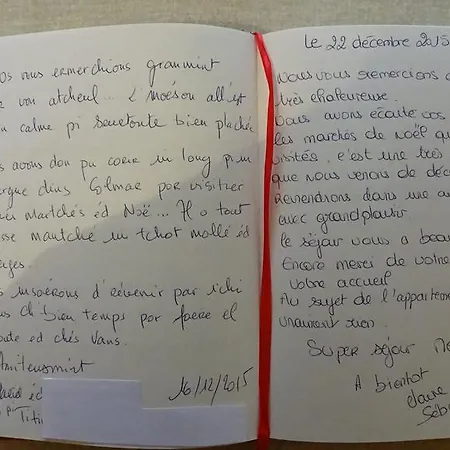 os vous ermerchions granmint
e von atcheul... L'moéson all'est
n calme pi seurtoute bien plachée
s avons don pu corre in long prom
ergue dins Colmar por visitier
Marchés éd Noë... Il o tout
sse mantché in tchot mollé éd
ages.
s insoérons d'érvenir par ichi
s el bien temps por foere el
oute ed chés Vans.
Amiteusmint
éd
Titi
16/12/2015
Le 22 décembre 2015
Nous vous remercions
très chaleureuse.
Nous avons écouté vos
les marchés de Noël qu
visités, c'est une très
que nous venons de déc
Reviendrons dans une a
avec grand plaisir.
le séjour nous a beau
Encore merci de votre
votre accueil
Au sujet de l'apparteme
vraiment rien.
Super séjour Me
A bientôt
Claire
Séb